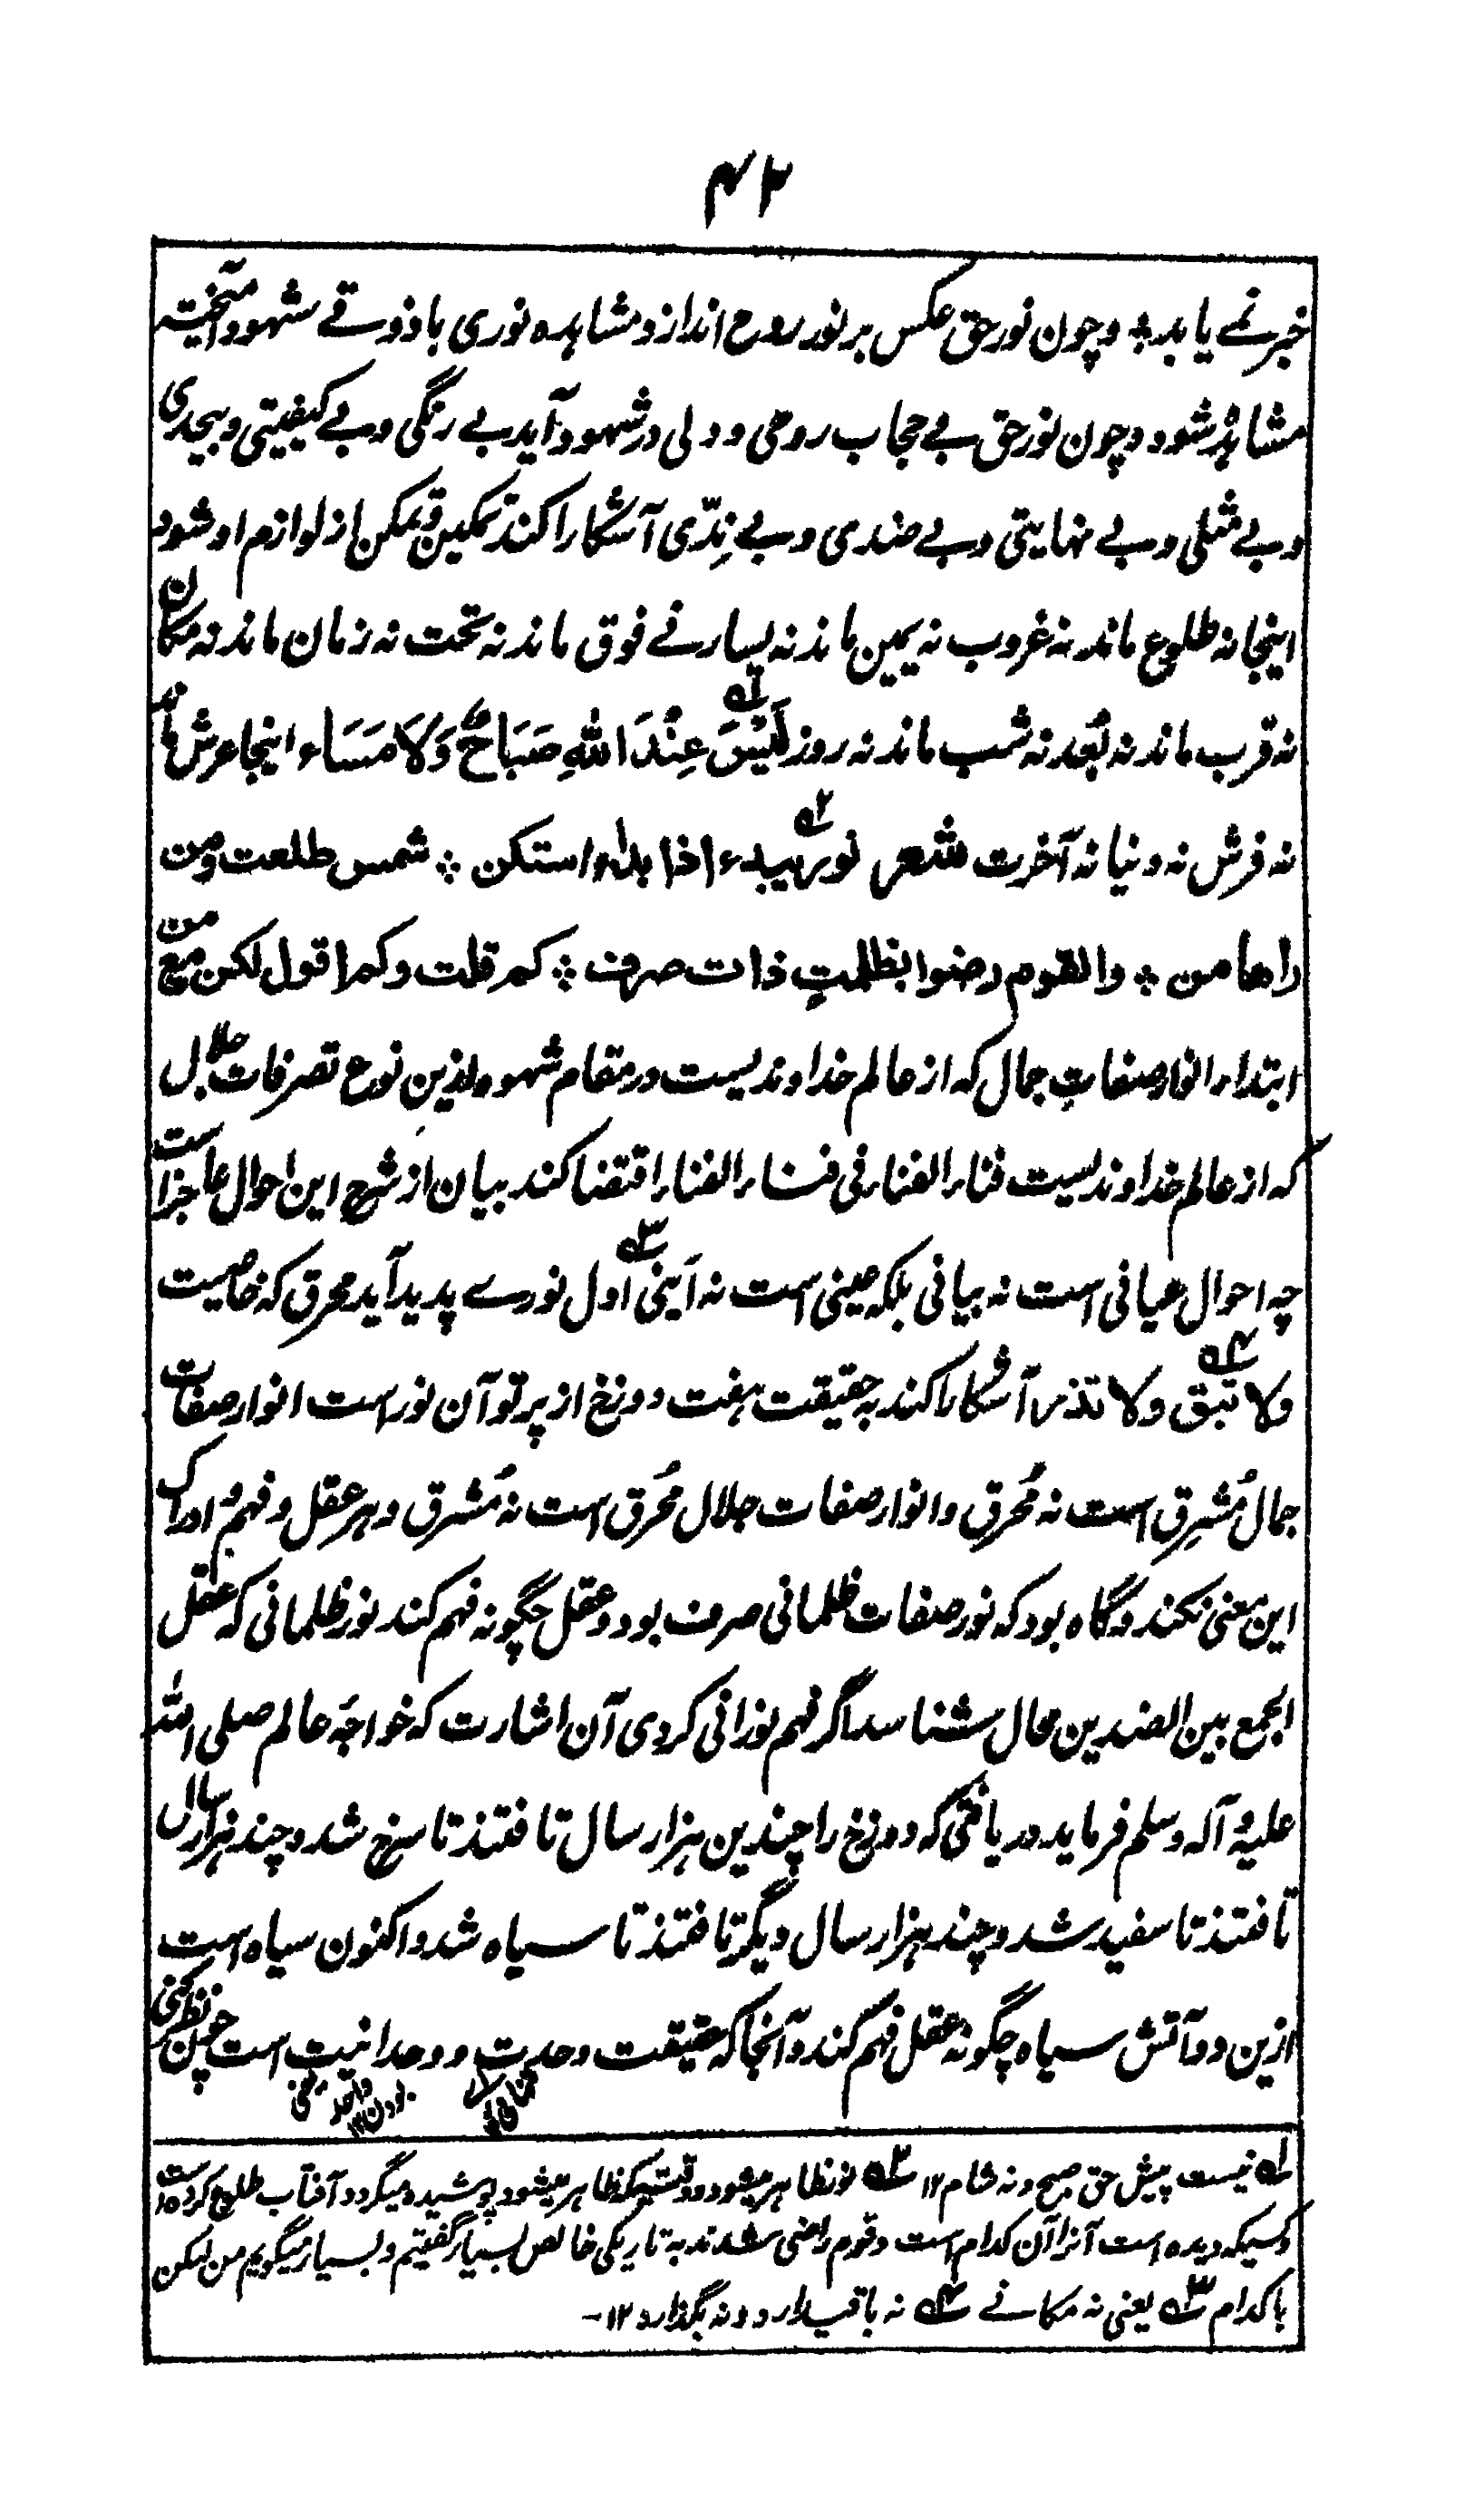 ۴۲
خبر نمے یابد ۔ وچون نور حق عکس بر نور روح اندازد مشاہدہ نوری باذوقے شہود آمیختہ
مشاہد شود وچون نور حق بے حجاب روحی و دلی در شہود آید بے رنگی و بے کیفیتی و بیحدی
و بے مثلی و بے نہایتی و بے ضدی و بے نِدّی آشکارا کند تمکین و تمکن از لوازم او شود
اینجا نہ طلوع ماند نہ غروب نہ یمین ماند نہ یسار نے فوق ماند نہ تحت نہ زمان ماند نہ مکان
نہ قرب ماند نہ بُعد نہ شب ماند نہ روز لَیْسَ عِنْدَ اللهِ صَبَاحٌ وَلَا مَسَاء اینجا عرش ماند
نہ فرش نہ دنیا نہ آخرت شعر نور یبدء اذا بدا استکن ۞ شمس طلعت ومن
راها من ۞ والقوم رضوا بظلمتِ ذات صرف ۞ کم قلت وکم اقول لکن مع من
ابتداء انوار صفاتِ جمال کہ از عالم خداوندیست در مقام شہود ازین نوع تصرفات جلال
کہ از عالم خداوندیست فناء الفناء فی فناء الفناء اقتضا کند بیان از شرح این احوال عاجز است
چہ احوال عیانی است نہ بیانی بلکہ عینی است نہ اَینی اول نورے پدید آید محرق کہ خاصیت
ولا تبق ولا تذر آشکارا کند چہ حقیقت ہفت دوزخ از پرتو آن نور است انوار صفات
جمال مُشرِق است نہ مُحرِق وانوار صفات جلال مُحرِق است نہ مُشرِق وہر عقل و فہم و ادراک
این معنی نکند وگاہ بود کہ نور صفات ظلمانی صرف بود وعقل چگونہ فہم کند نور ظلمانی کہ عقل
الجمع بین الضدین محال شناسد اگر فہم نورانی کردی آن اشارت کہ خواجۂ عالم صلی اللہ
علیہ وآلہ وسلم فرماید دریافتی کہ دوزخ را چندین ہزار سال تافتند تا سرخ شد وچند ہزار سال
تافتند تا سفید شد وچند ہزار سال دیگر تافتند تا سیاہ شد واکنون سیاہ است
ازین دو آتش سیاہ چگونہ عقل فہم کند وآنجا کہ حقیقت وحدت و وحدانیت است چون نظر کنی
لہ نیست پیش حق صبح ونہ شام ۱۲ ۲ہ نور ظاہر میشود وقتیکہ ظاہر میشود پوشیدہ میگردد آفتاب طلوع کردہ است
وکسیکہ دیدہ است آنرا آن کدام است وقوم راضی شدند بہ تاریکی خالص بسیار گفتیم وبسیار میگویم من لیکن
باکدام ۳ہ یعنی نہ مکانے ۴ہ نہ باقیدارد ونہ بگذارد ۱۲ـ